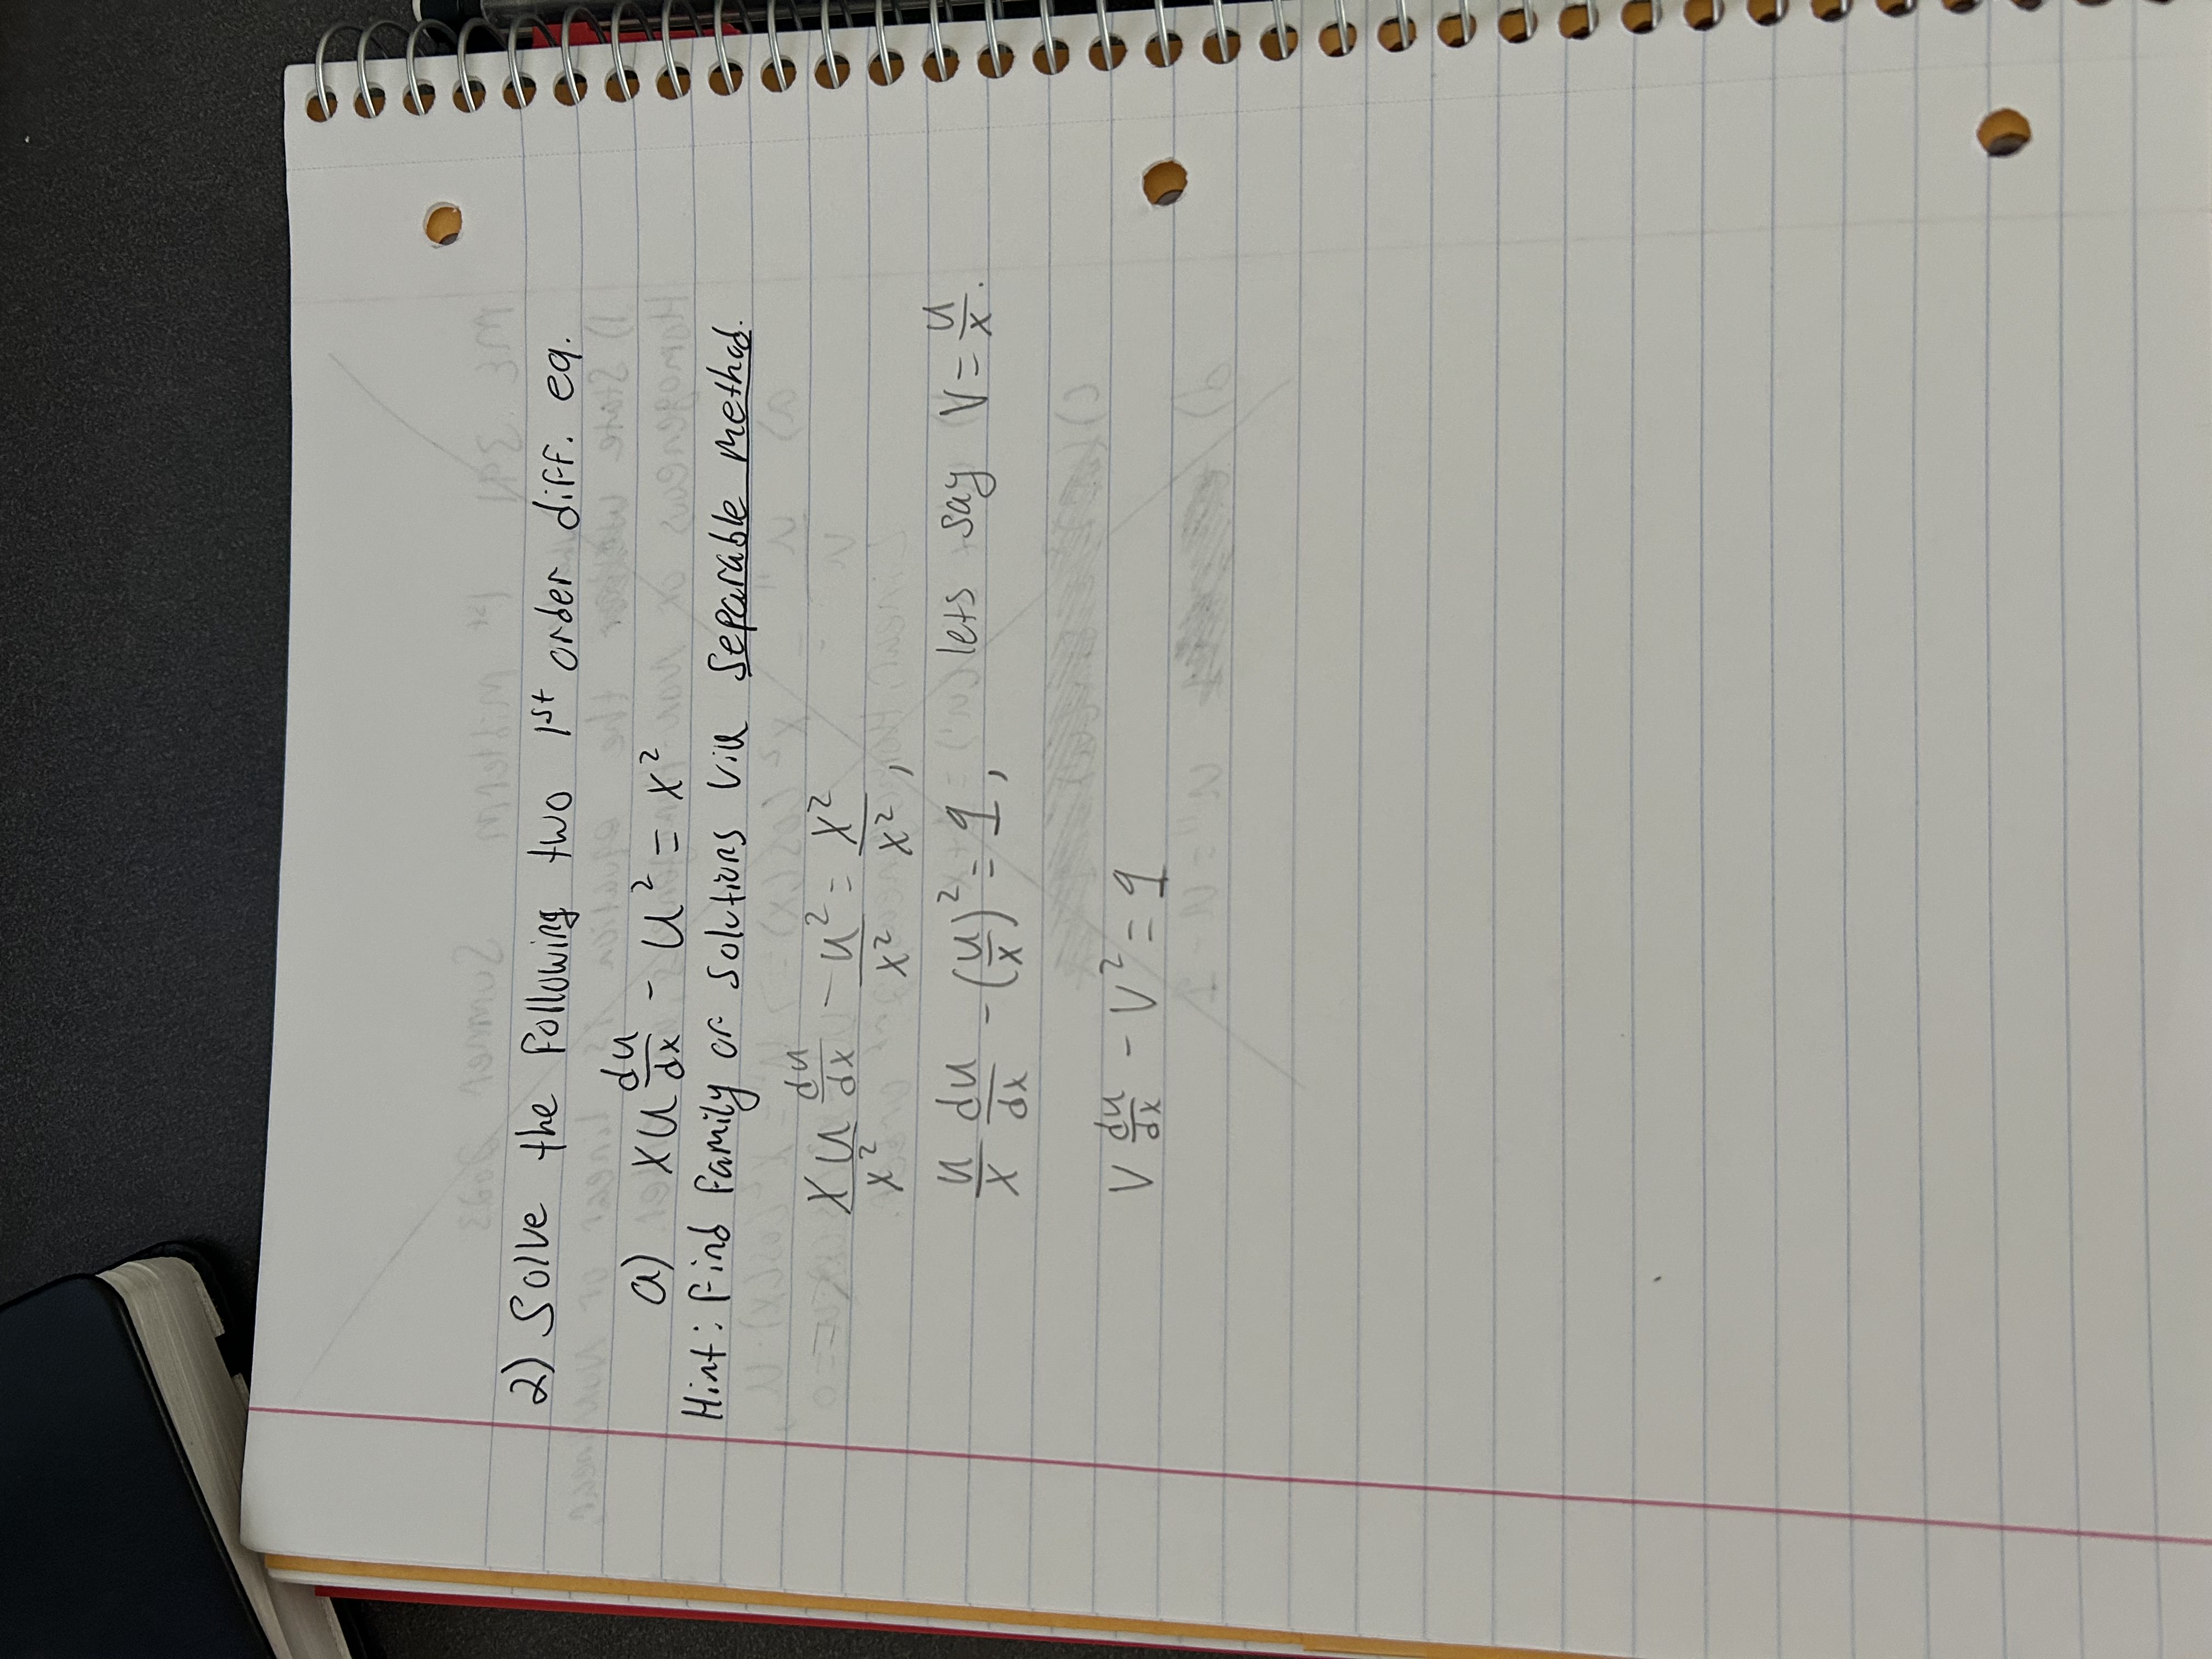 2) Solve the following two 1st order diff. eq.
a) xu du/dx - u² = x²
Hint: Find family of solutions via separable method.
xu/x² du/dx - u²/x² = x²/x²,
u/x du/dx - (u/x)² = 1, lets say V = u/x.
V du/dx - V² = 1